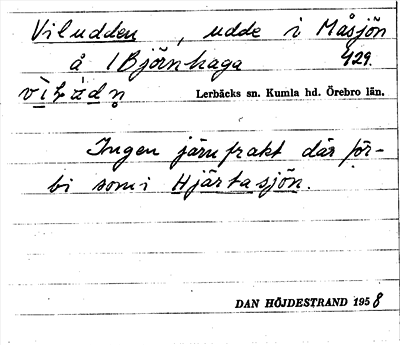 Viludden , udde i Måsjön
å 1 Björnhaga 429.
Lerbäcks sn. Kumla hd. Örebro län.
Ingen järnfrakt där för-
bi som i Hjärtasjön.
DAN HÖJDESTRAND 1958